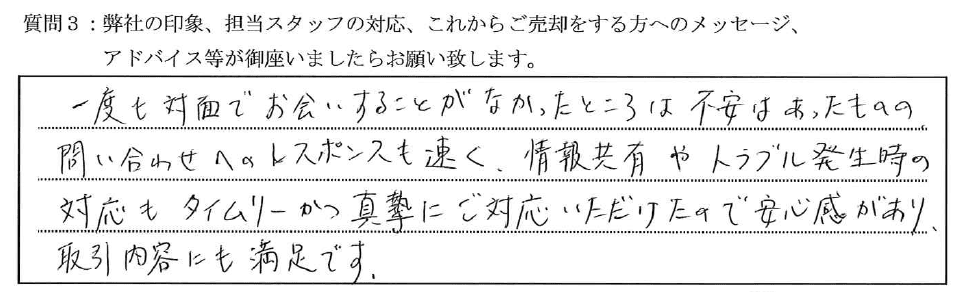 質問３：弊社の印象、担当スタッフの対応、これからご売却をする方へのメッセージ、
アドバイス等が御座いましたらお願い致します。
一度も対面でお会いすることがなかったところは不安はあったものの、
問い合わせへのレスポンスも速く、情報共有やトラブル発生時の
対応もタイムリーかつ真摯にご対応いただけたので安心感があり、
取引内容にも満足です。